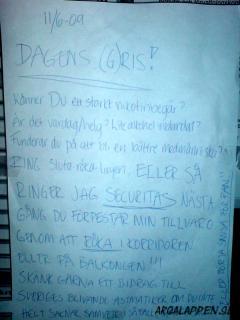 11/6-09
DAGENS (G)RIS!
Känner DU ett starkt nikotinbegär?
Är det vardag/helg? Lite alkohol indandat?
Funderar du på att bli en bättre medmänniska?
RING Sluta röka linjen, ELLER SÅ
RINGER JAG SECURITAS NÄSTA
GÅNG DU FÖRPESTAR MIN TILLVARO
GENOM ATT RÖKA I KORRIDOREN
ELLER PÅ BALKONGEN!!!
SKÄNK GÄRNA ETT BIDRAG TILL
SVERIGES BLIVANDE ASTMATIKER OM DU INTE
HELT SAKNAR SAMVETE
ARGALAPPEN.SE